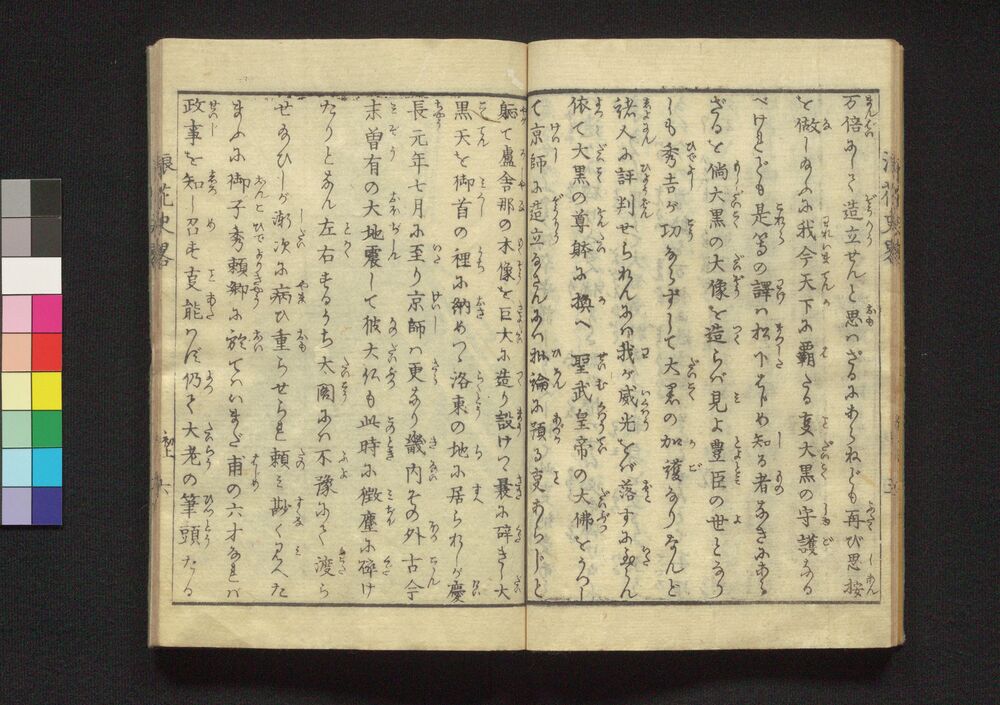 万倍にして造立せんと思はざるにあらねども再び思按
を做しゐふに我今天下に覇たる事大黒の守護なる
べけれども是等の譯は松下はじめ知る者なきにあら
ざるを倘大黒の大像を造らば見よ豊臣の世となり
しも秀吉が功ならずして大黒の加護なりなんと
諸人に評判せられんには我が威光をば落すに至らん
依て大黒の尊躰に換へ 聖武皇帝の大佛をうつし
て京師に造立なさんには批論に預る事あらじと
躬て盧舎那の木像を巨大に造り設けつゝ曩に碎きし大
黒天を御首の裡に納めつゝ洛東の地に居られしが慶
長元年七月に至り京師は更なり畿内その外古今
未曽有の大地震して彼大仏も此時に微塵に碎け
たりとなん左右するうち大閤には不豫にて渡ら
せゐひしが漸次に病ひ重らせられ頼み尠く見へた
まふに御子秀頼卿に於てはいまだ甫の六才なれば
政事を知し召す事能はず仍て大老の筆頭たる
浪花史畧
初
六